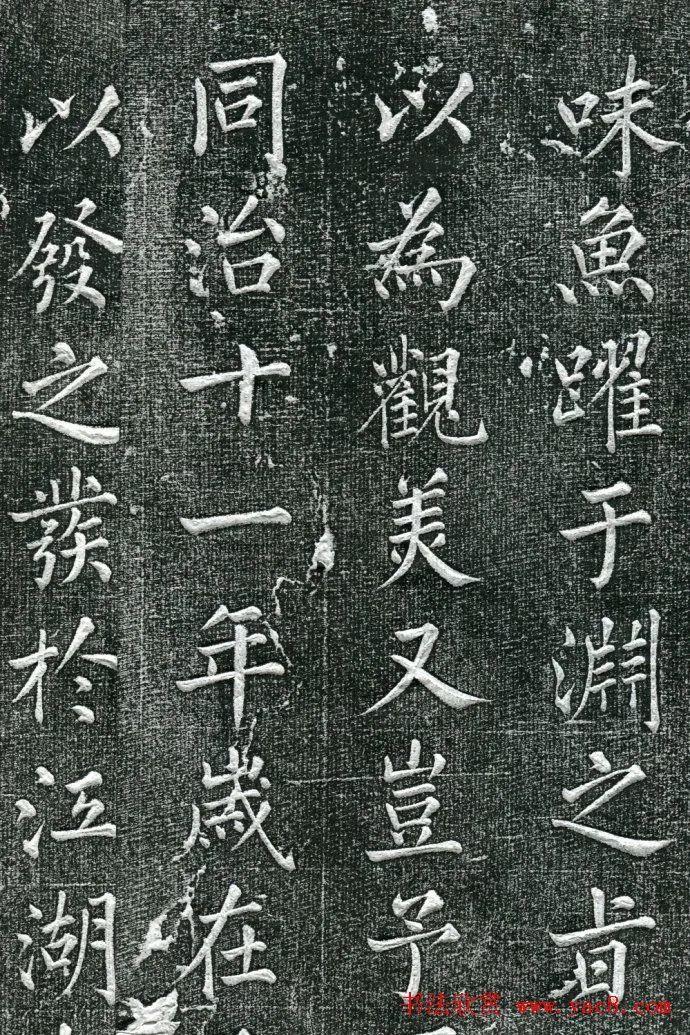 味魚躍于淵之旨
以為觀美又豈予
同治十一年歲在
以發之發於江湖
书法欣赏 www.yac8.com